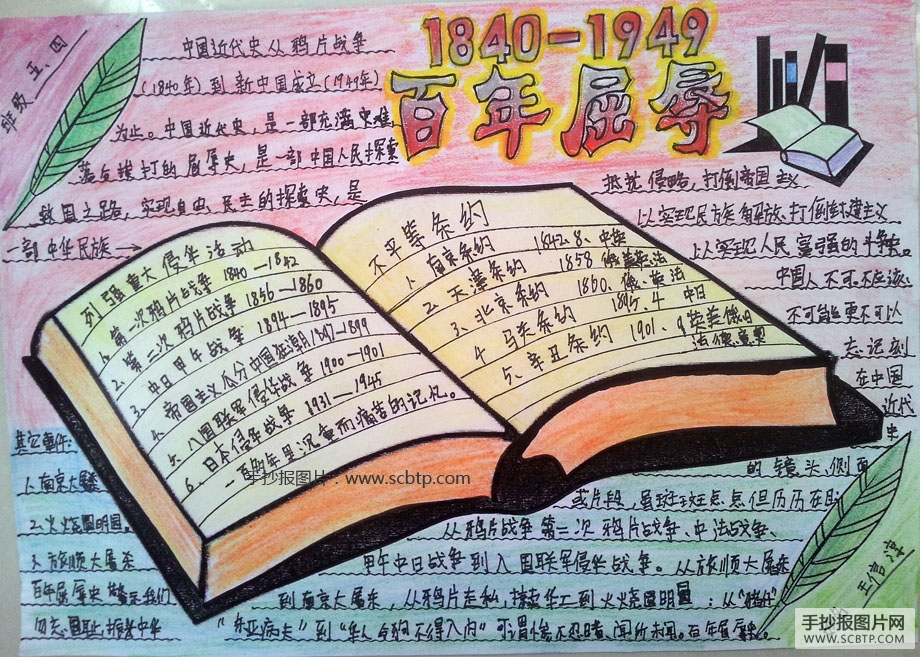 1840-1949
百年屈辱
班级 五、四
中国近代史从鸦片战争
(1840年)到新中国成立(1949年)
为止。中国近代史,是一部充满灾难、
落后挨打的屈辱史,是一部中国人民探索
救国之路,实现自由、民主的探索史,是
一部中华民族→
抵抗侵略,打倒帝国主义
以实现民族解放、打倒封建主义
以实现人民富强的斗争史。
中国人不可、不应该、
不可能更不可以
忘记刻
在中国
近代
史
的镜头、侧面
或片段,虽斑斑点点但历历在目
从鸦片战争、第二次鸦片战争、中法战争、
甲午中日战争到八国联军侵华战争。从旅顺大屠杀
到南京大屠杀,从鸦片走私,掠卖华工到火烧圆明园:从
"东亚病夫"到"华人与狗不得入内"可谓惨不忍睹、闻所未闻。百年屈辱史。
列强重大侵华活动
1、第一次鸦片战争 1840—1842
2、第二次鸦片战争 1856—1860
3、中日甲午战争 1894—1895
4、帝国主义瓜分中国狂潮 1897—1899
5、八国联军侵华战争 1900—1901
6、日本侵华战争 1931—1945
一百的年里沉重而痛苦的记忆。
不平等条约
1、南京条约 1842.8、中英
2、天津条约 1858 俄美英法
3、北京条约 1860、俄、英法
4、马关条约 1895.4 中日
5、辛丑条约 1901.9 英美俄日
法德意奥
其它事件:
1、南京大屠杀
2、火烧圆明园。
3、旅顺大屠杀
百年屈辱史警示我们
勿忘国耻,振兴中华
王信淳
手抄报图片:www.scbtp.com
手抄报图片网
WWW.SCBTP.COM